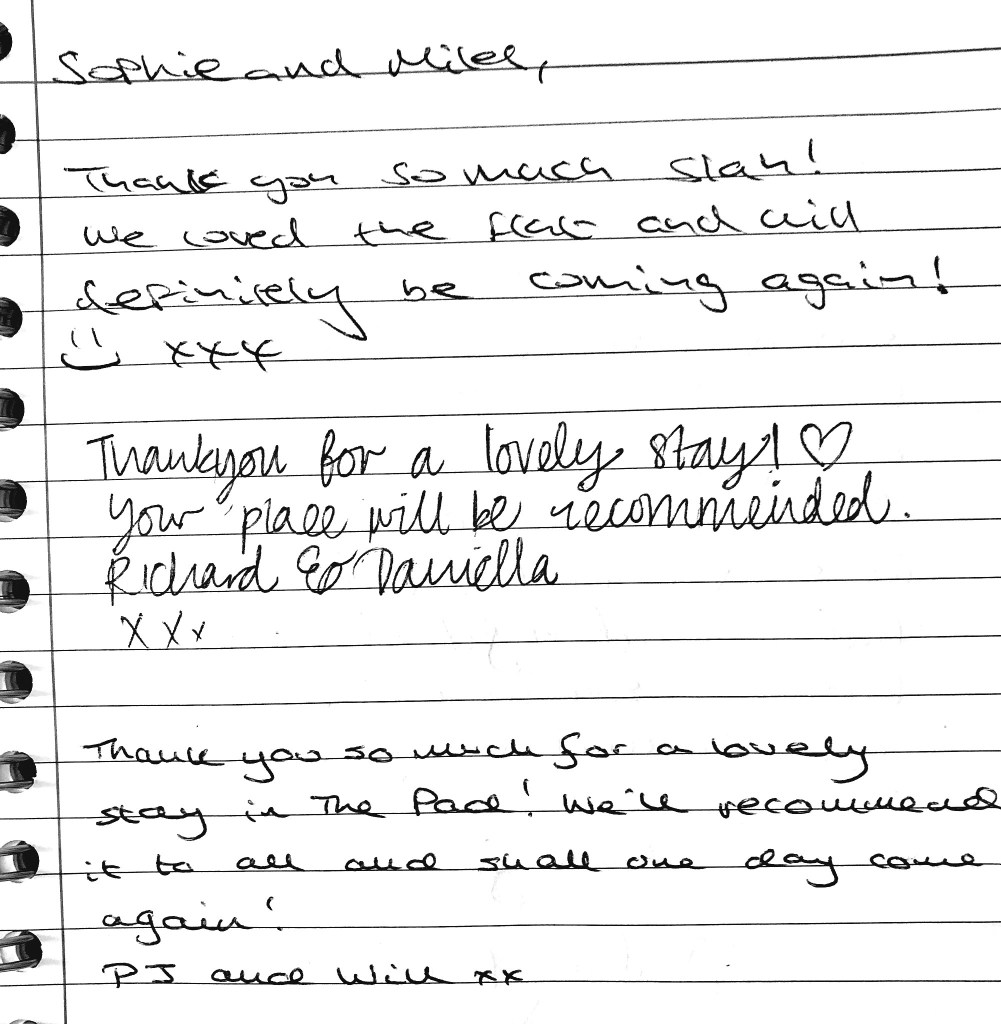 Sophie and Miles,
Thank you so much Siân!
We loved the flat and will
definitely be coming again!
xxx
Thankyou for a lovely stay! ♡
Your place will be recommended.
Richard & Daniella
x x x
Thank you so much for a lovely
stay in The Pad! We'll recommend
it to all and shall one day come
again!
PJ and Will xx